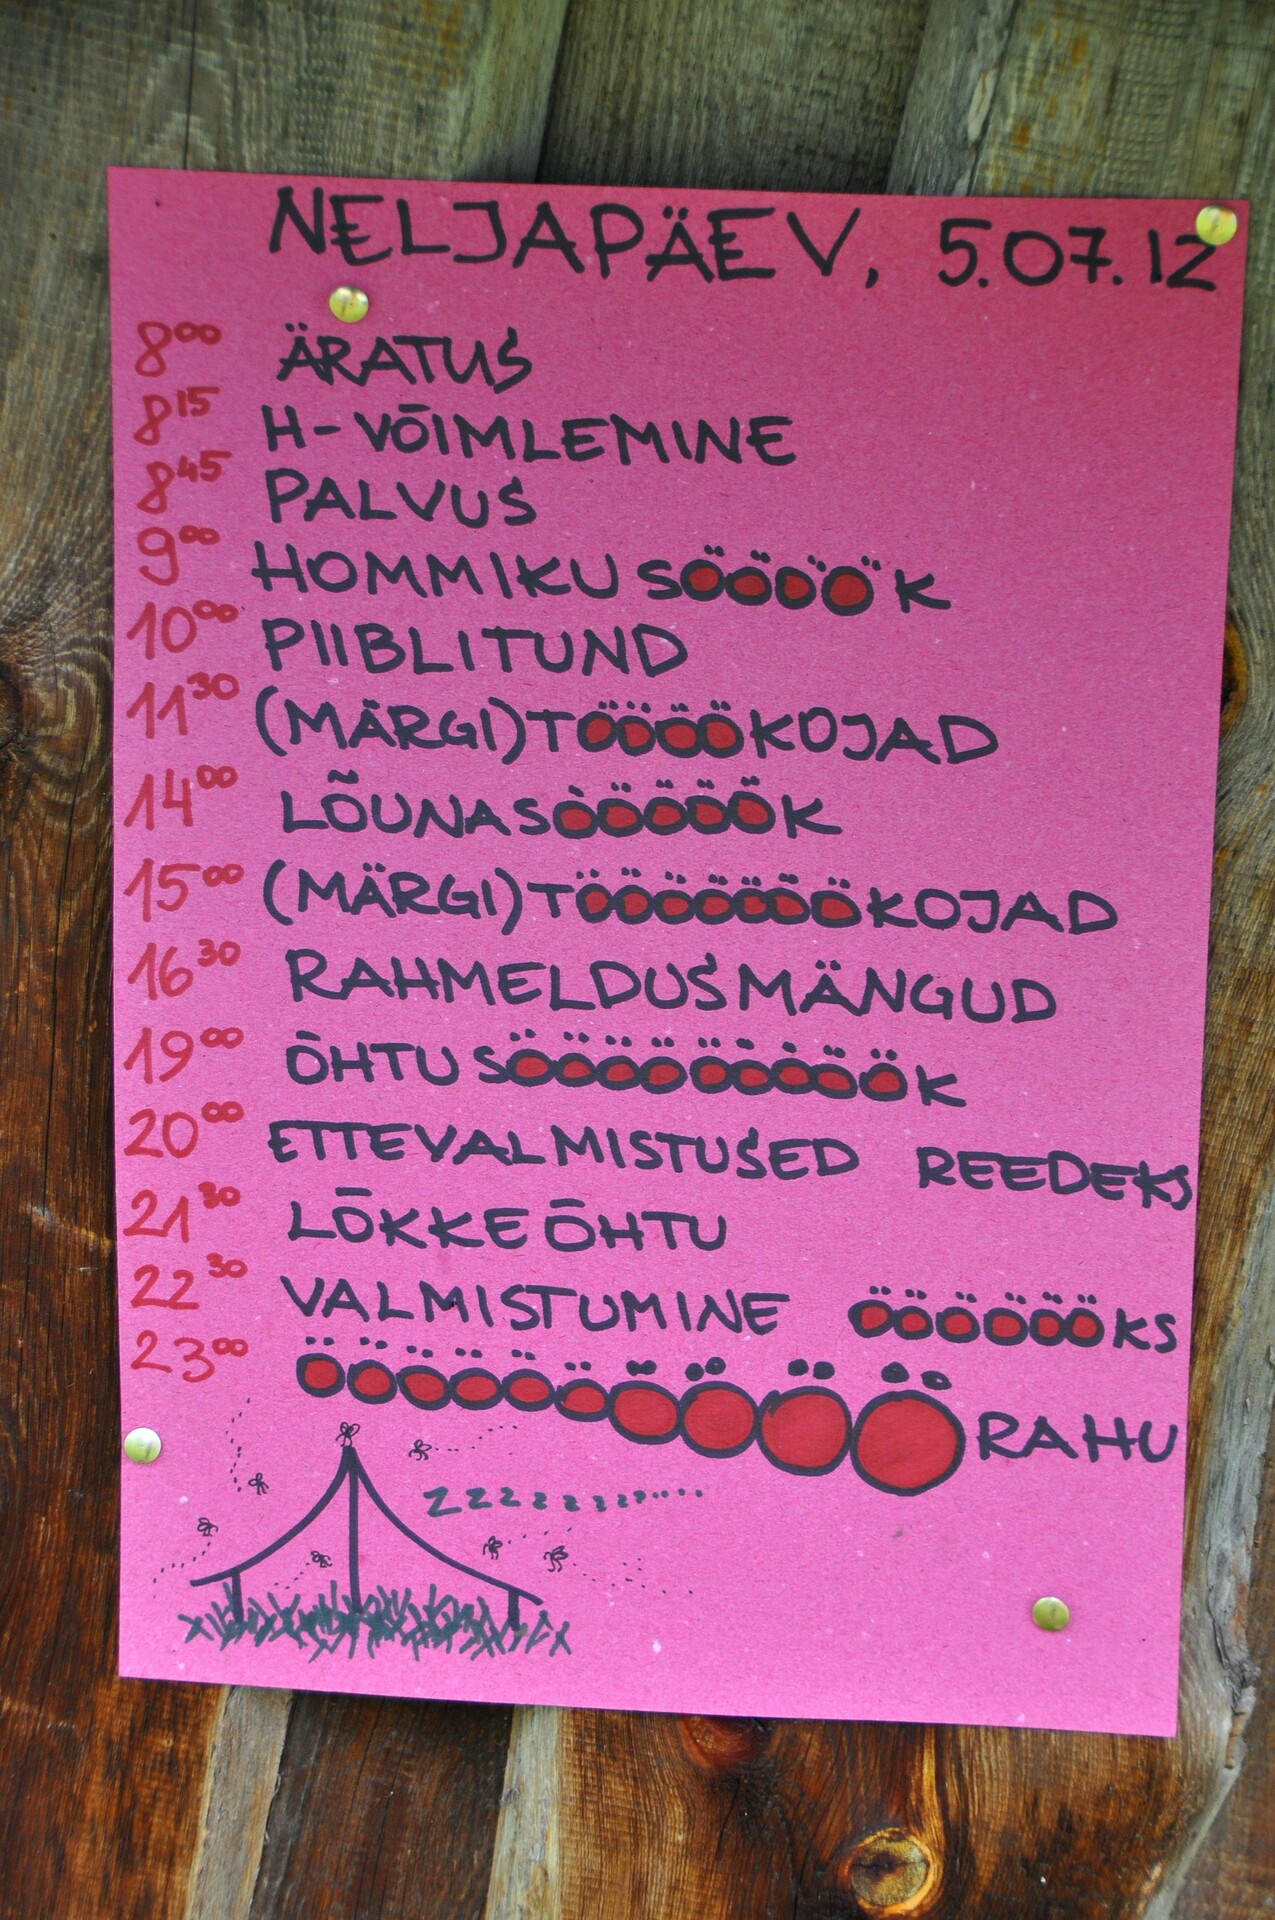 NELJAPÄEV, 5.07.12
8⁰⁰ ÄRATUS
8¹⁵ H-VÕIMLEMINE
8⁴⁵ PALVUS
9⁰⁰ HOMMIKUSÖÖÖÖK
10⁰⁰ PIIBLITUND
11³⁰ (MÄRGI)TÖÖÖÖKOJAD
14⁰⁰ LÕUNASÖÖÖÖÖK
15⁰⁰ (MÄRGI)TÖÖÖÖÖÖÖKOJAD
16³⁰ RAHMELDUSMÄNGUD
19⁰⁰ ÕHTUSÖÖÖÖÖÖÖÖÖK
20⁰⁰ ETTEVALMISTUSED REEDEKS
21³⁰ LÕKKEÕHTU
22³⁰ VALMISTUMINE ÖÖÖÖÖÖKS
23⁰⁰ ÖÖÖÖÖÖÖÖÖÖRAHU
ZZZZZZZZZ.....